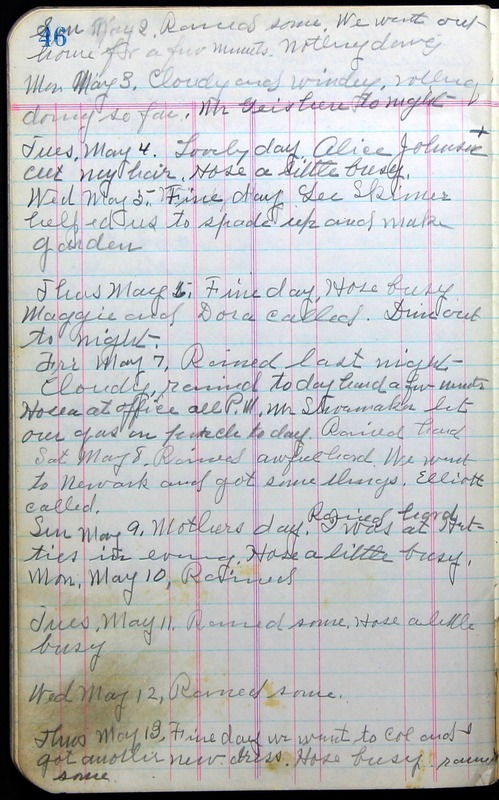 46
Sun May 2, Rained some. We went out
home for a few minutes. Nothing doing
Mon May 3. Cloudy and windy, nothing
doing so far. Mr Geis here to night
Tues, May 4. Lovely day Alice Johnson
cut my hair. Hose a little busy.
Wed May 5. Fine day Lee Skinner
helped us to spade up and make
garden
Thus May 6, Fine day, Hose busy
Maggie and Dora called. Dim out
to night
Fri May 7, Rained last night
Cloudy, rained to day hard a few minutes
Hosea at office all P.M. Mr Shoemaker let
our gas in to day. Rained hard
Sat May 8, Rained awful hard. We went
to Newark and got some things. Elliott
called.
Sun May 9, Mothers day. Rained hard
I was at Hat-
ties in evening. Hose a little busy.
Mon, May 10, Rained
Tues, May 11. Rained some, Hose a little
busy
Wed May 12, Rained some.
Thus May 13, Fine day we went to Col and
got another new dress. Hose busy. rained
some